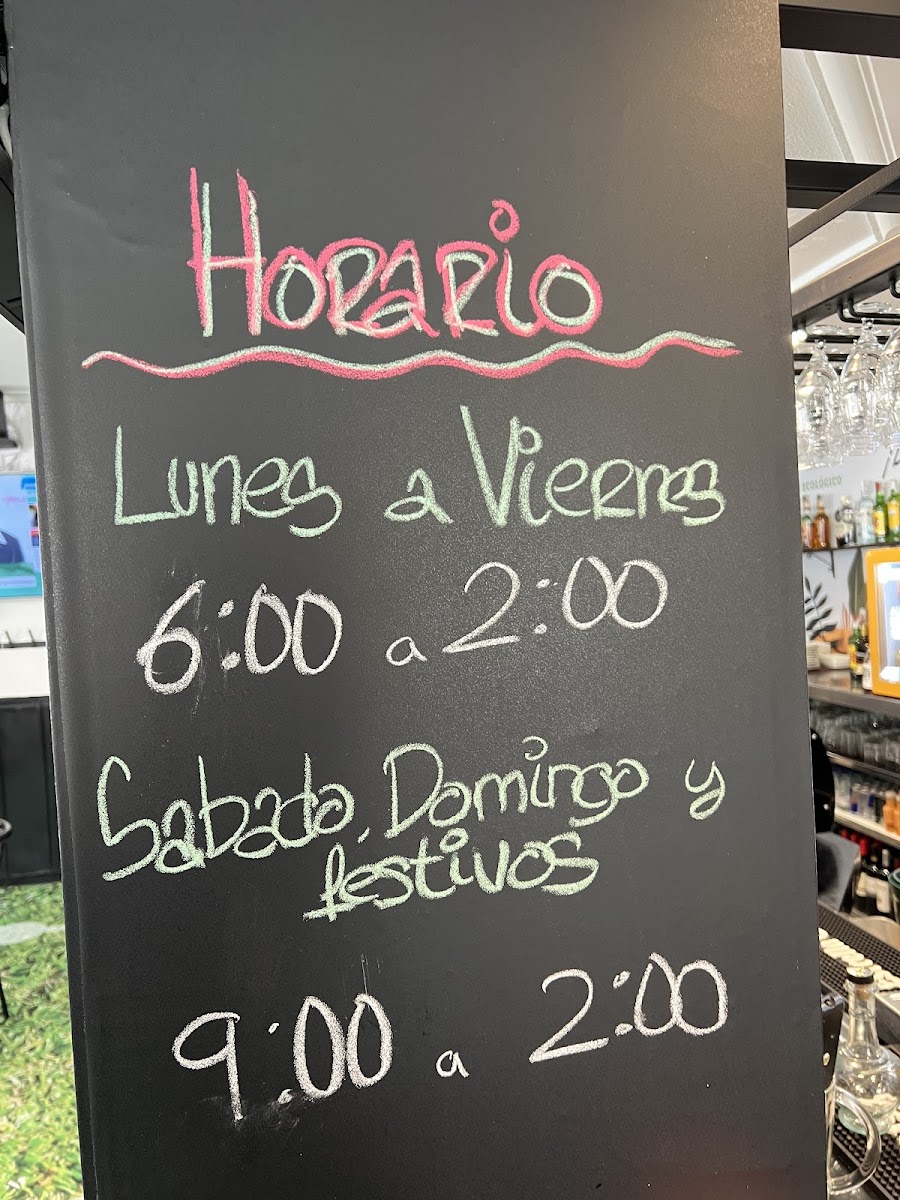 Horario
Lunes a Viernes
6:00 a 2:00
Sabado, Domingo y
festivos
9:00 a 2:00
ECOLÓGICO